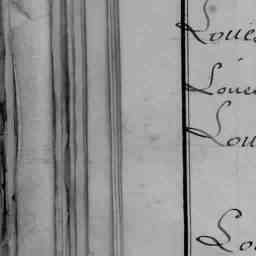 Loués
Loues
Lou
Lo